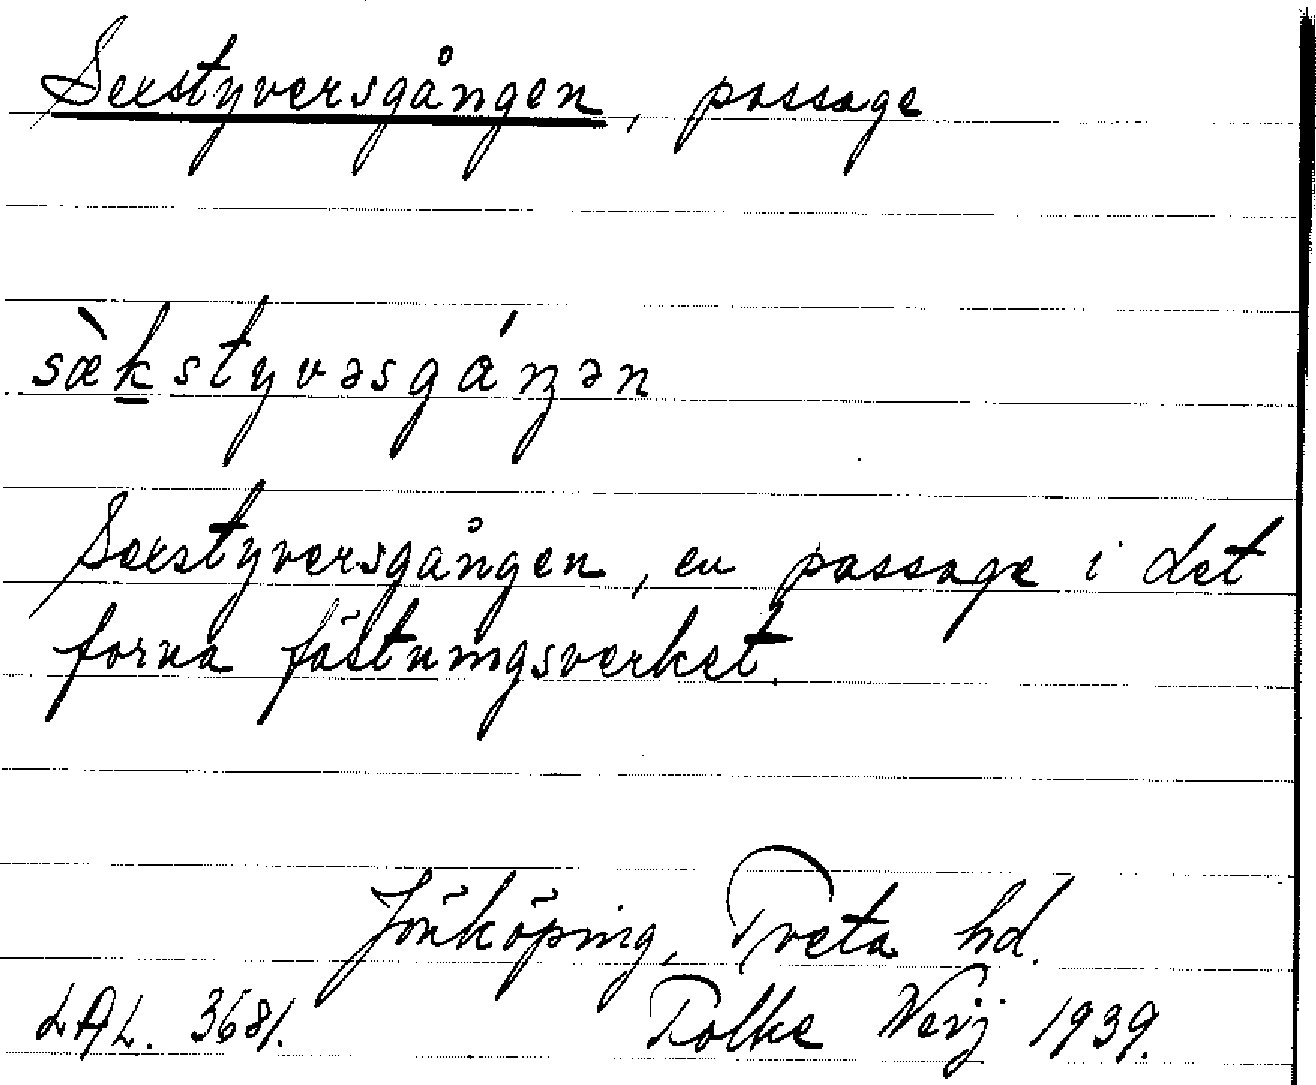 Sexstyversgången, passage
sæ̀kstyvəsgáŋən
Sexstyversgången, en passage i det
forna fästningsverket.
Jönköping, Tveta hd.
LAL. 3681. Folke Verij 1939.